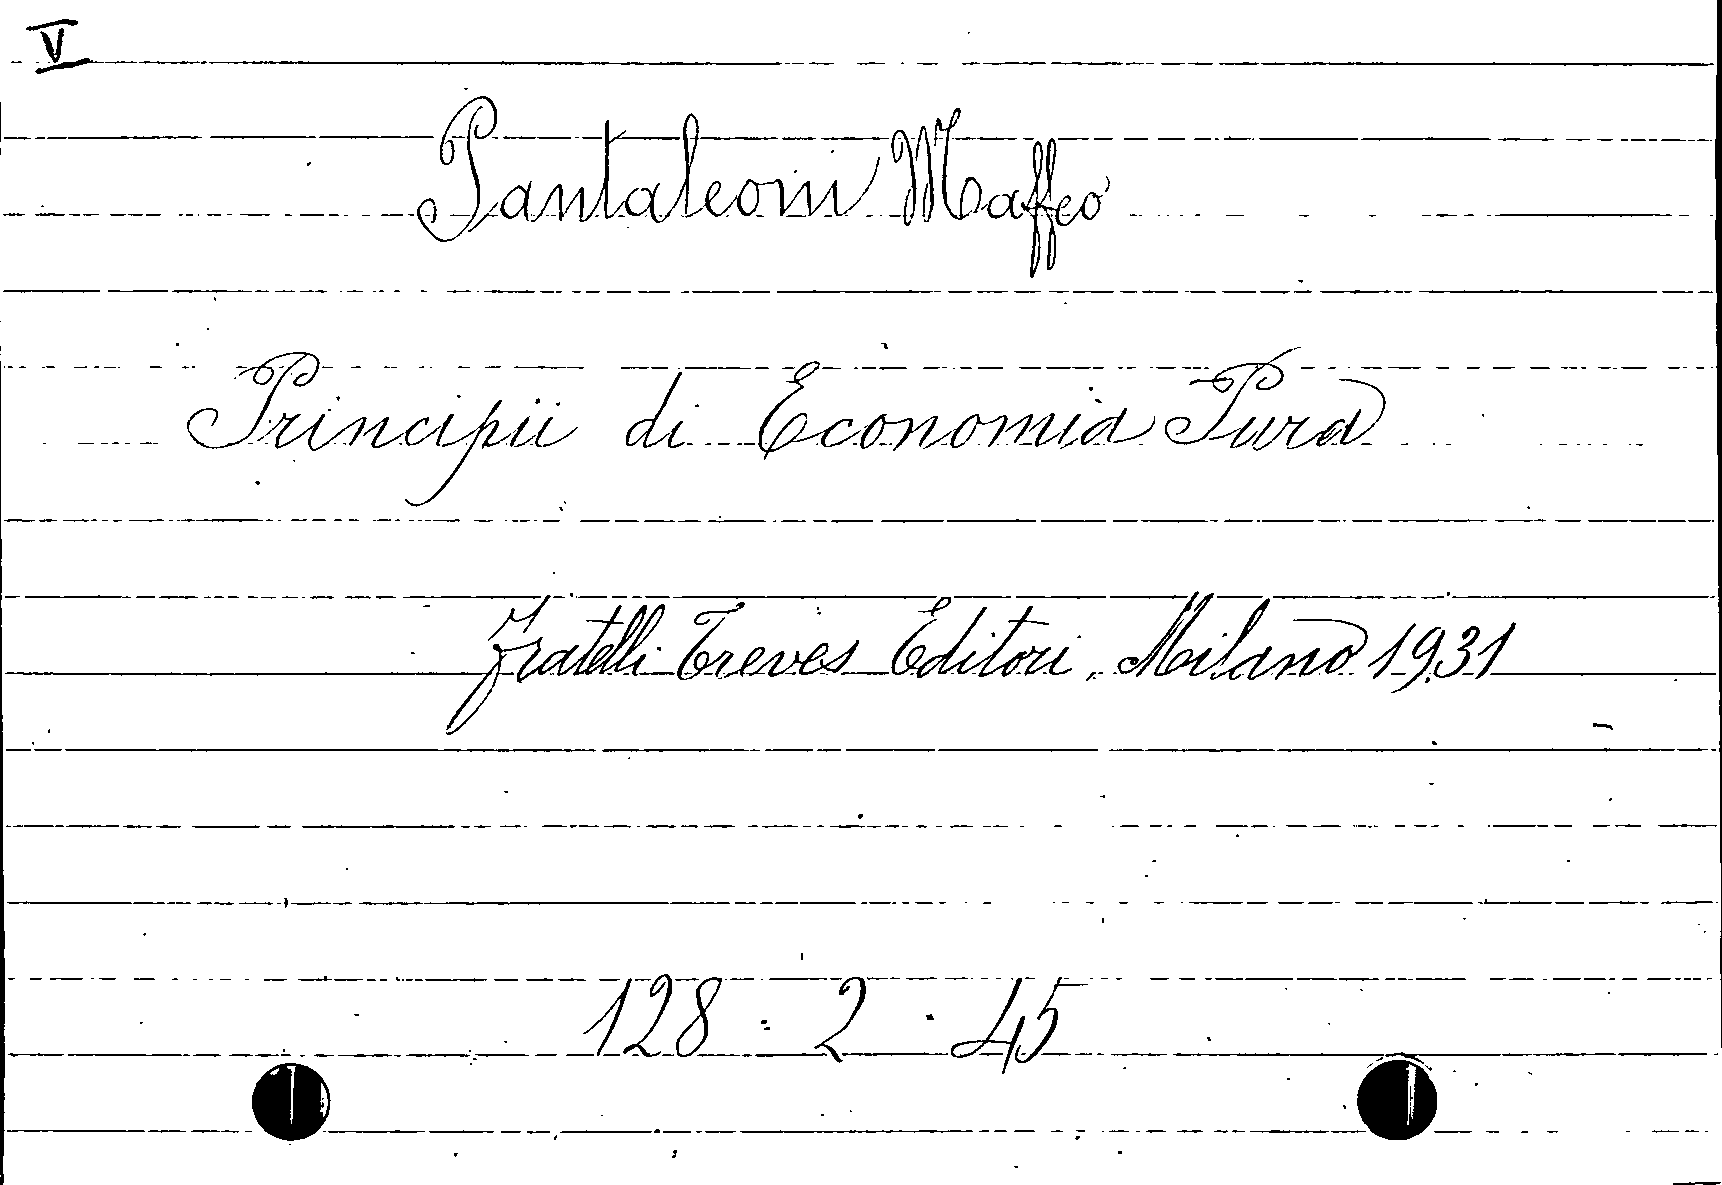 V
Pantaleoni Maffeo
Principii di Economia Pura
Fratelli Treves Editori, Milano 1931
128 · 2 · 45